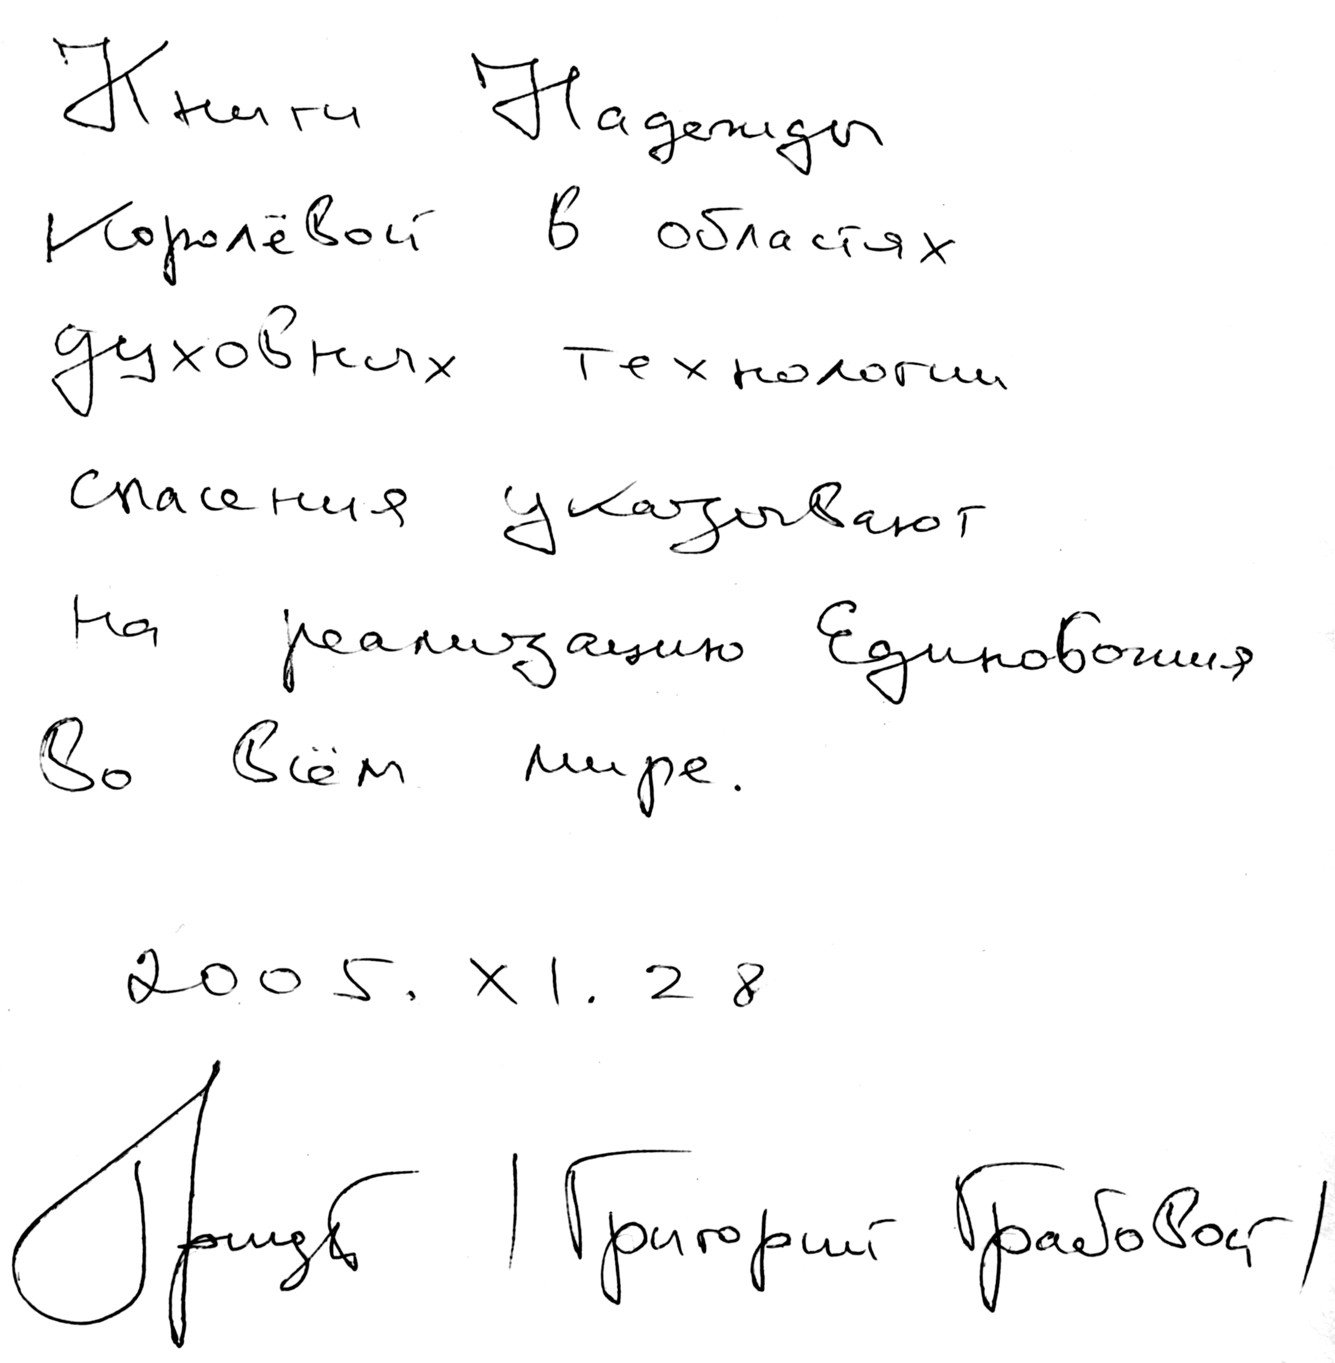 Книги Надежды
Королёвой в областях
духовных технологии
спасения указывают
на реализацию Единобожия
Во всём мире.
2005. XI. 28
/Григорий Грабовой/